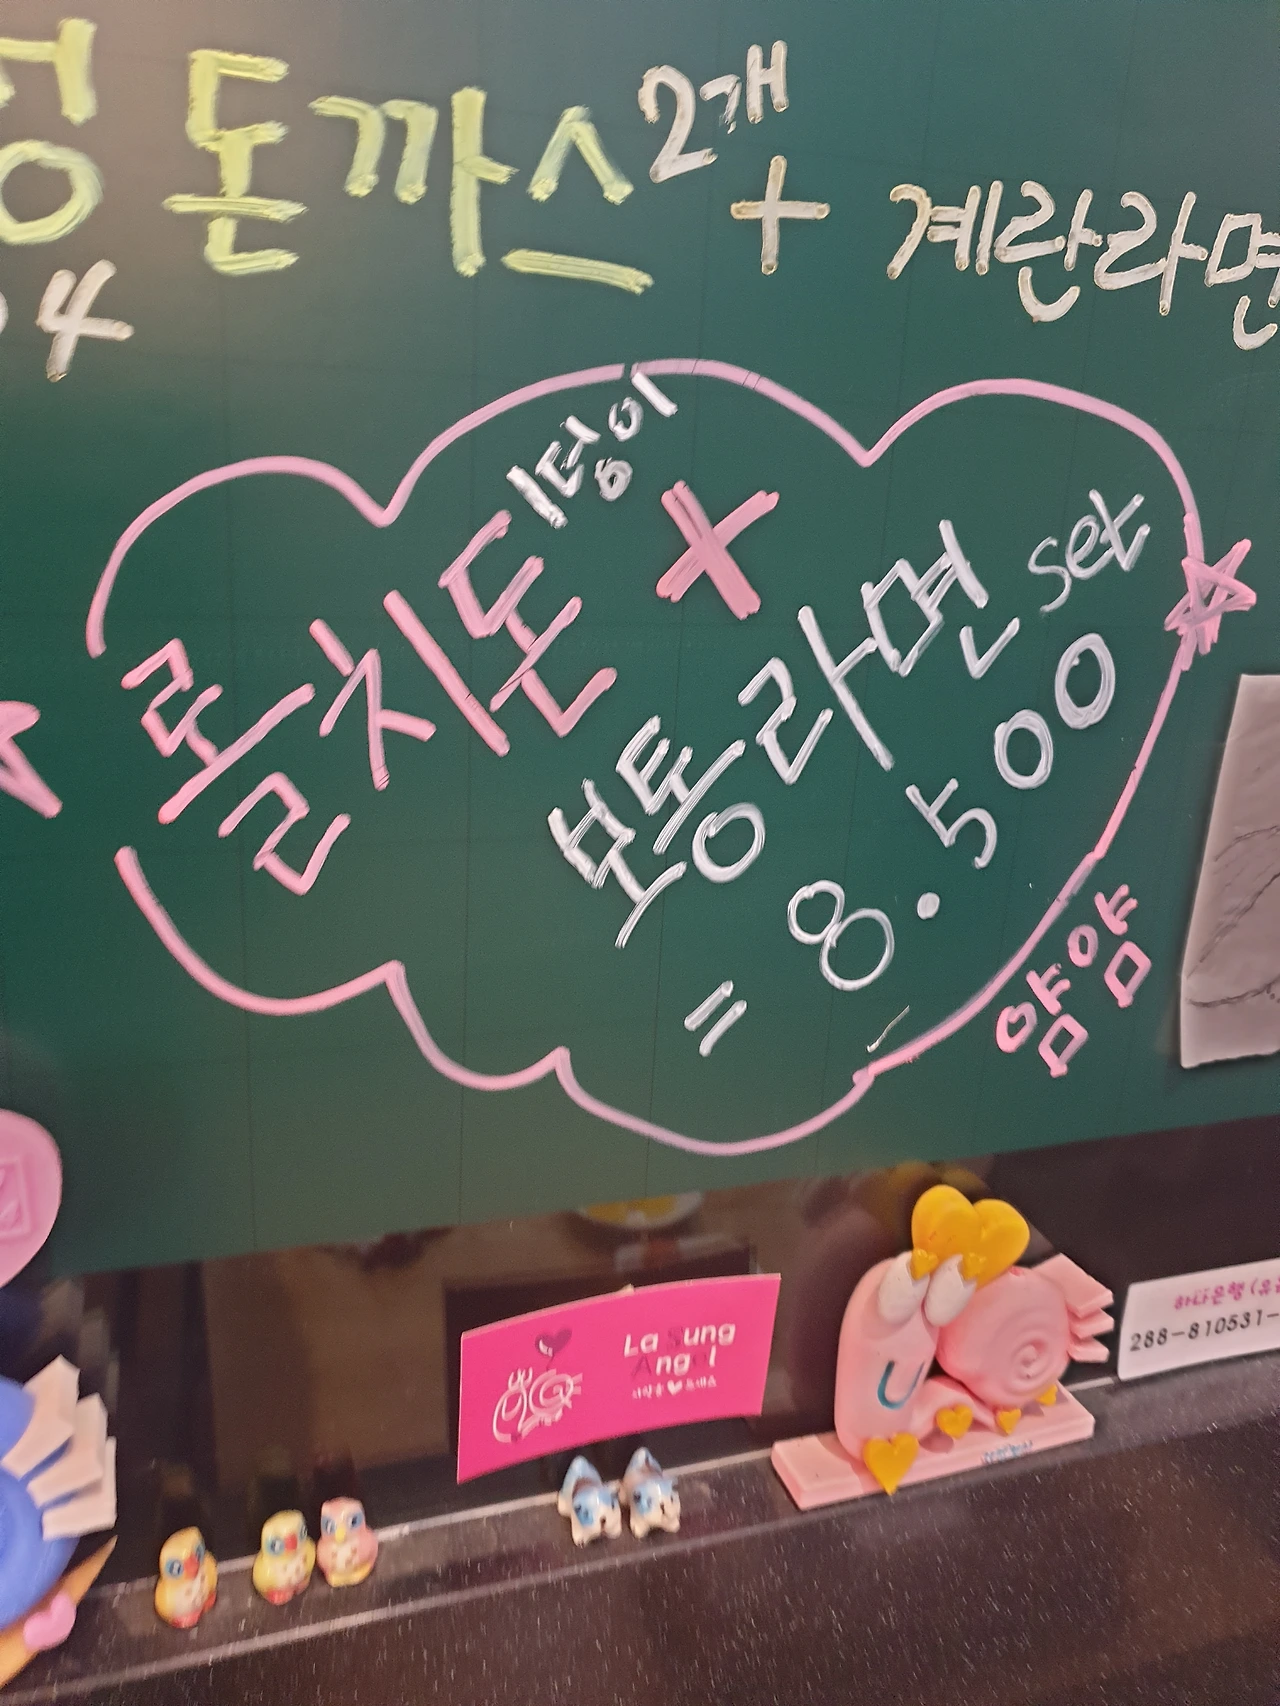 정 돈까스 2개
+ 계란라면
4
롤치돈 1덩이
+
보통라면 set
= 8.500
얌얌
La Sung
Angel
하나은행 (유
288-810531-